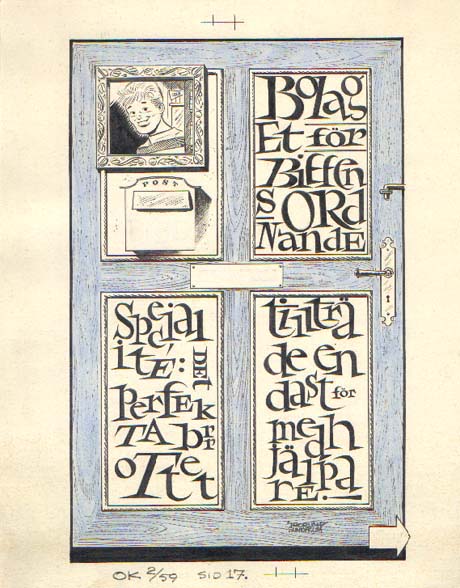 POST
BOLAG
Et för
Biffen
S ORD
NANDE
Special
itÉ: DEt
PerfEk
TA br
oTtet
tillträ
de en
dast för
medh
jälpa
re!
OK 2/59 SID 17.